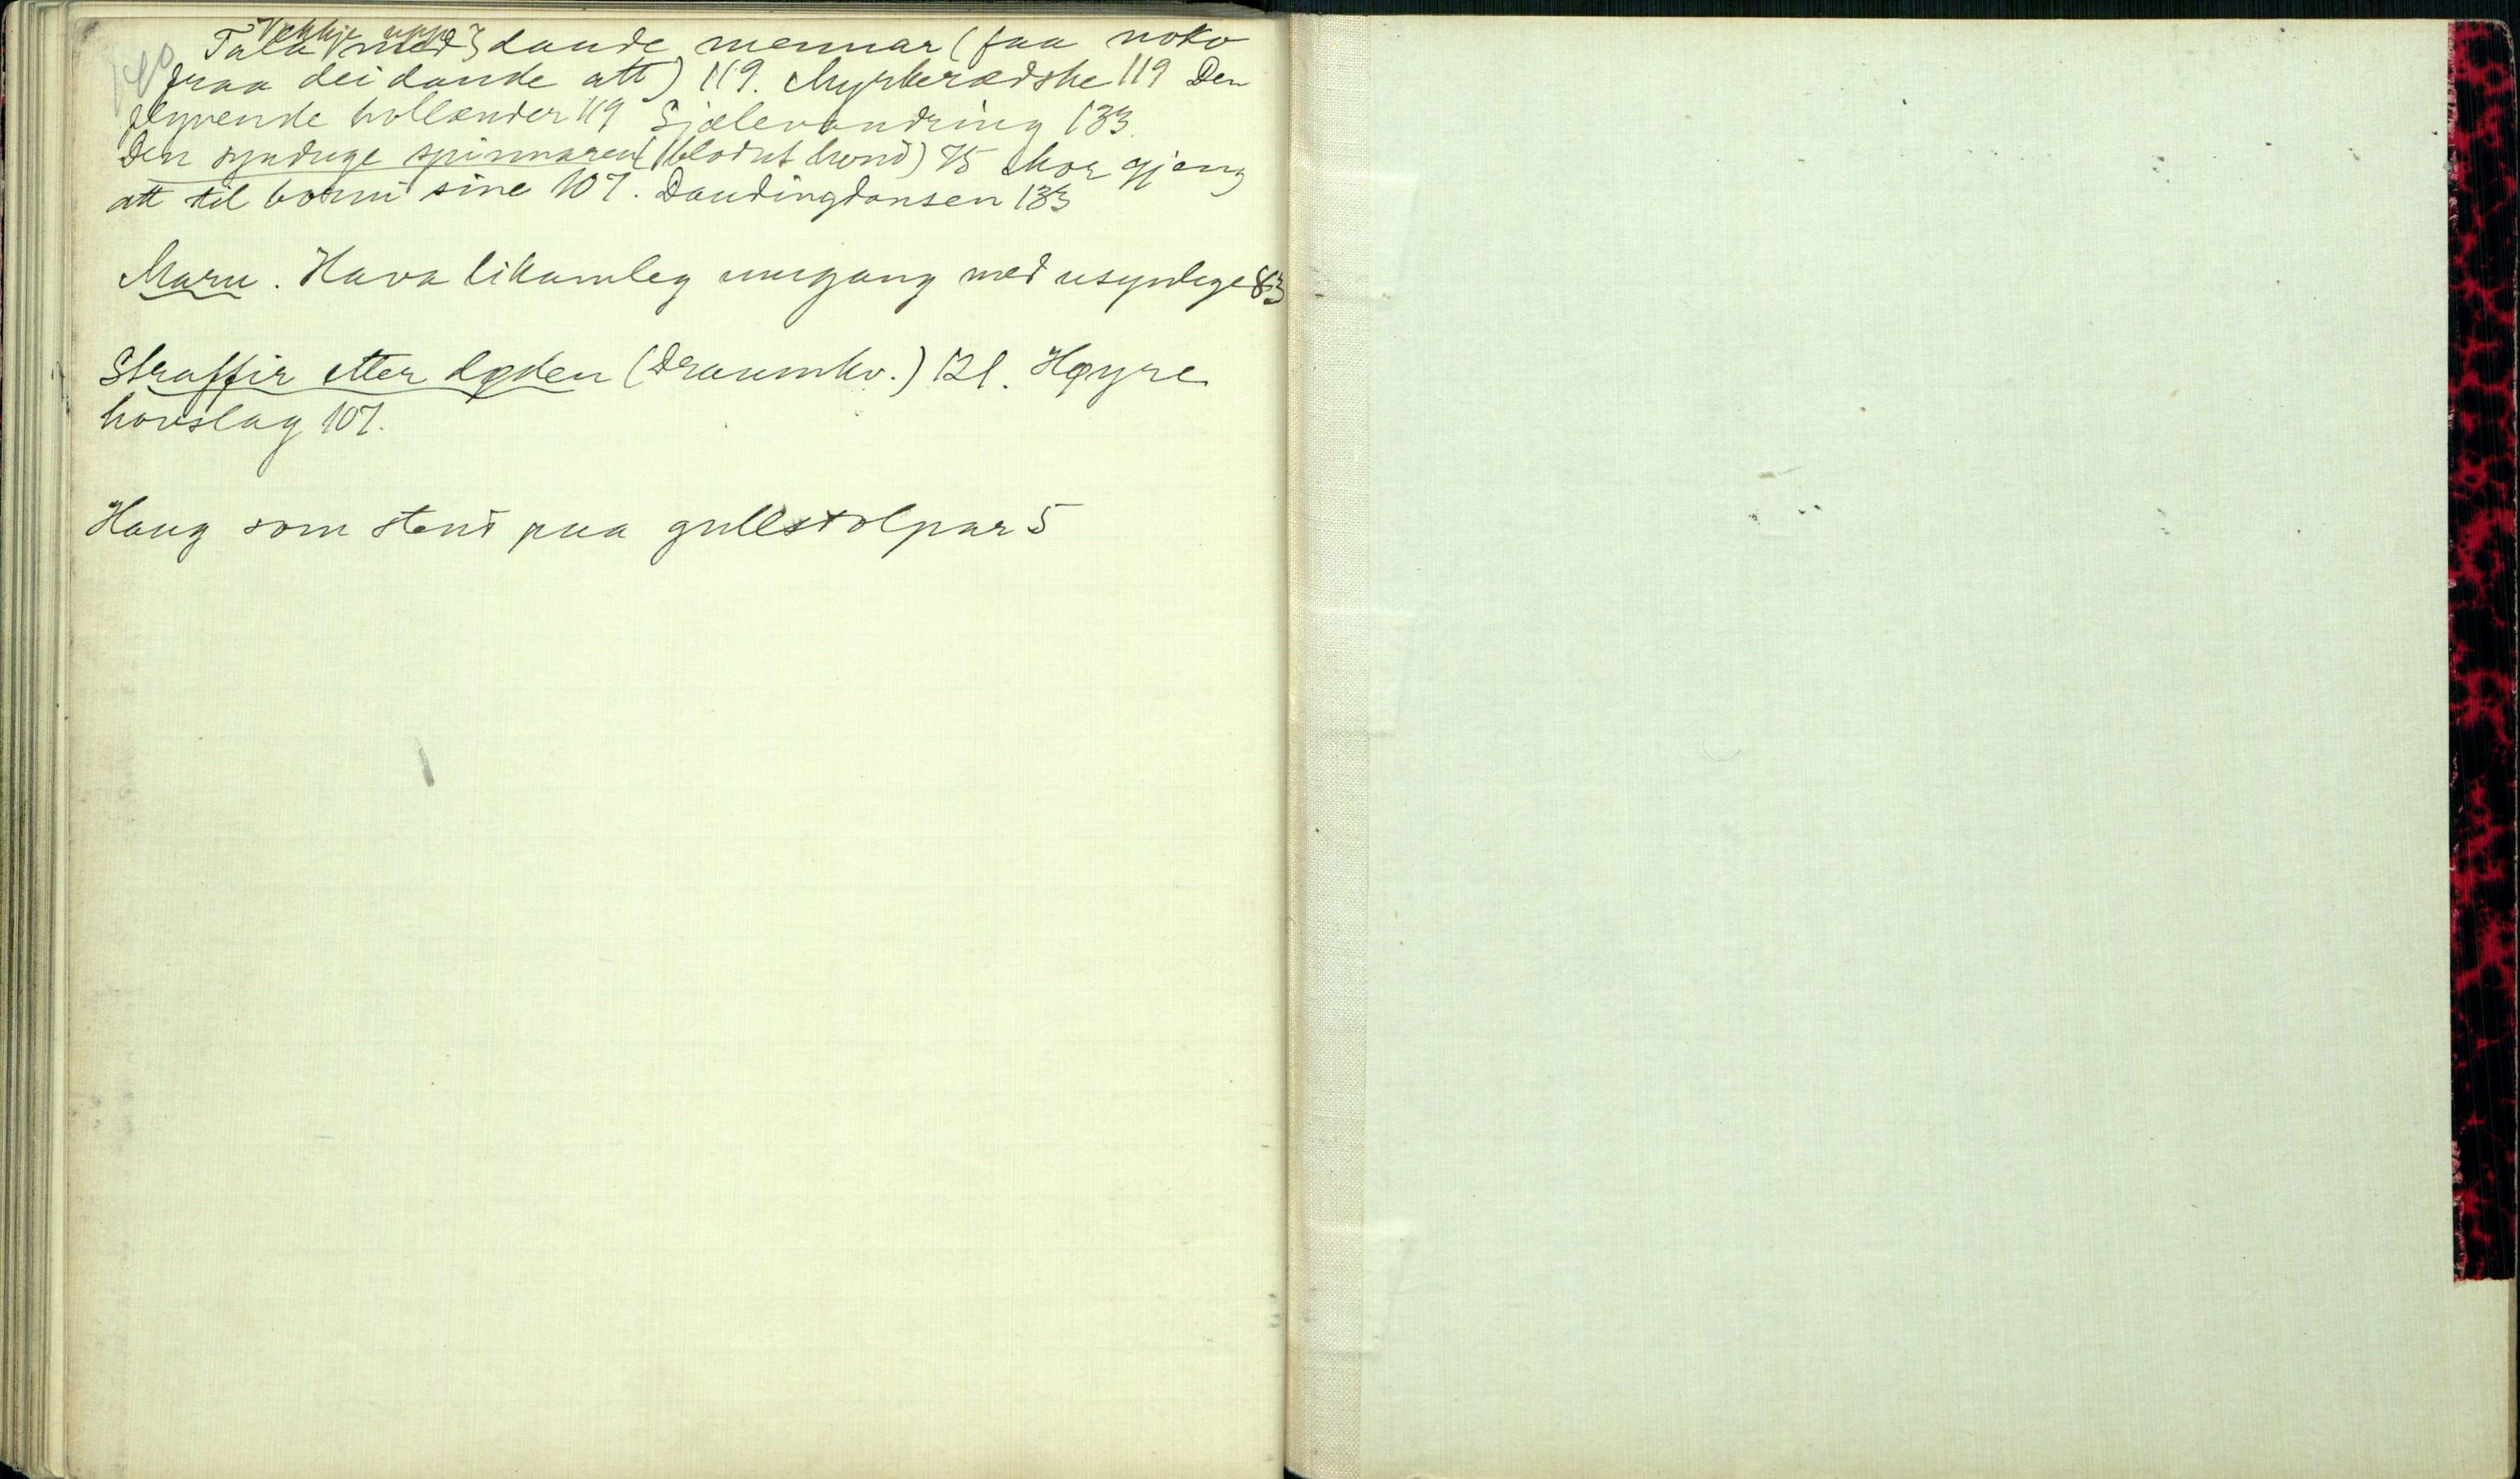 Vekkje upp
Tala med daude mennar (faa noko
fraa dei daude att) 119. Myrkerædske 119 Den
flyvende hollænder 119 Sjælevandring 133.
Den synduge spinnaren (blodut hond) 75 Mor gjeng
att til borni sine 107. Daudingdansen 133
Maru. Hava likamleg umgang med usynlege 83
Straffir etter døden (Draumkv.) 121. Høyre
hovslag 107.
Haug som stend paa gullstolpar 5